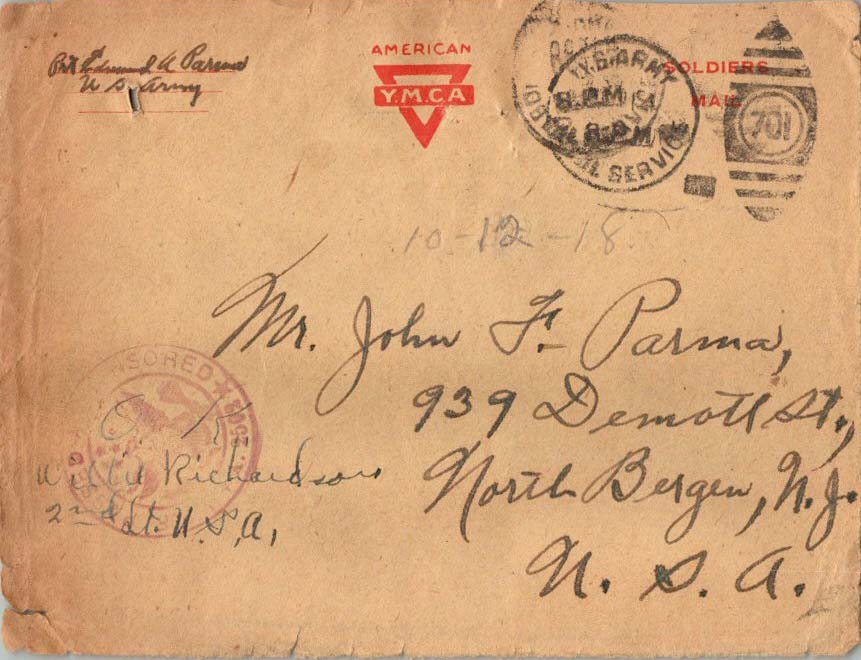 Pvt Edmund A Parma
U S Army
AMERICAN
Y.M.C.A
SOLDIERS
MAIL
U.S. ARMY
POSTAL SERVICE
701
10-12-18
Mr. John F. Parma,
939 Demott St.,
North Bergen, N.J.
U. S. A.
CENSORED
O. K.
Willie Richardson
2nd Lt. U.S.A.